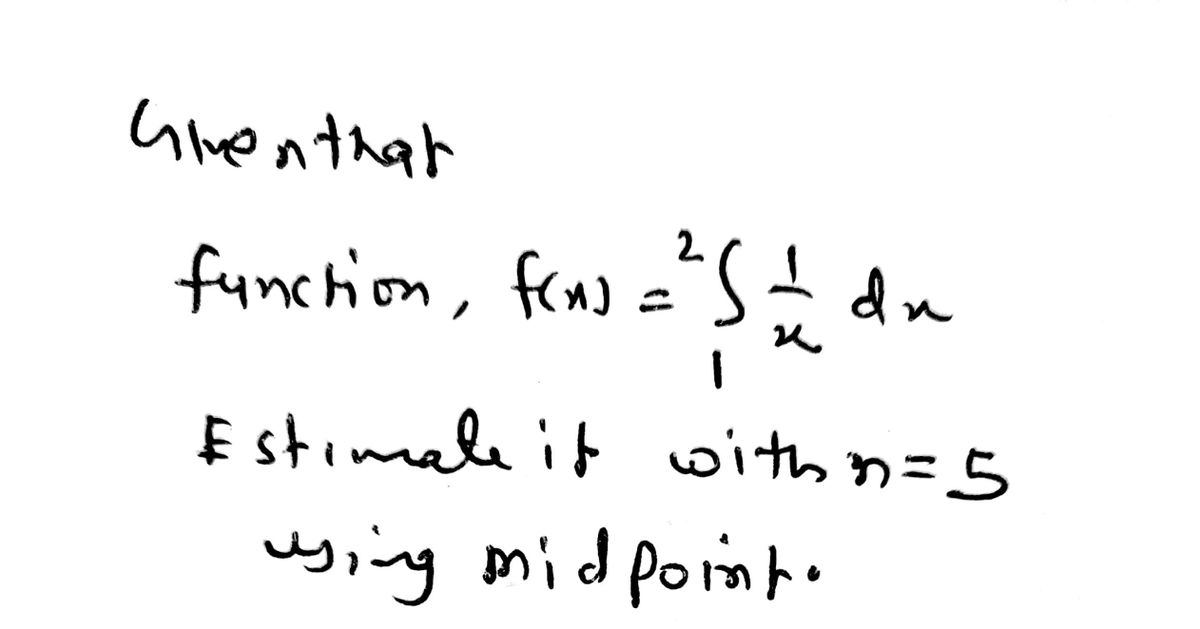 Given that
function, f(x) = ²∫₁ 1/x dx
Estimate it with n = 5
using midpoint.